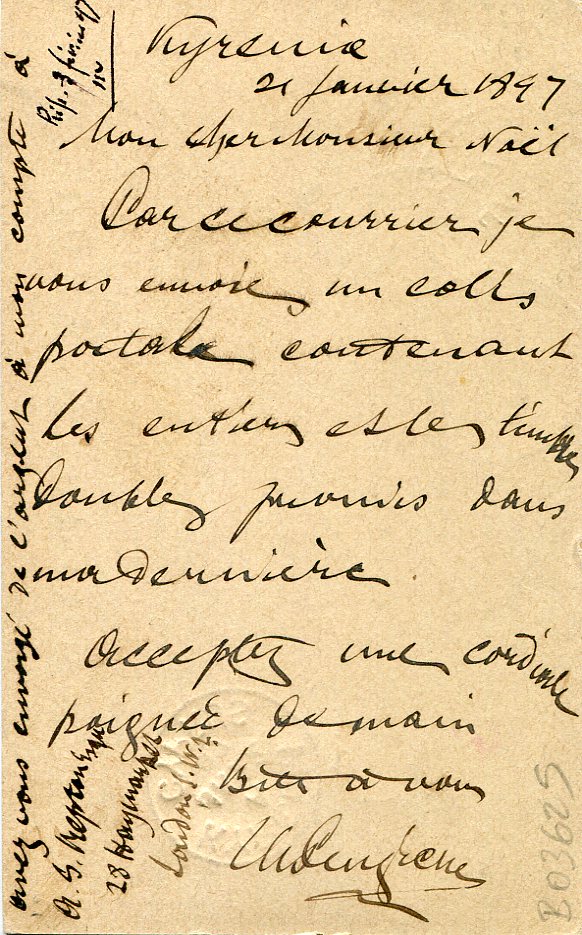 Kyrenia
21 Janvier 1897
Mon cher Monsieur Noël
Par ce courrier je
vous envoie un colis
postale contenant
les entiers et les timbres
doubles promis dans
ma dernière
Acceptez une cordiale
poignée de main
à vous
avez vous envoyé de l'argent à mon compte à
28 Haymarket
London S.W.?
Rép. 3 février 97
B03625